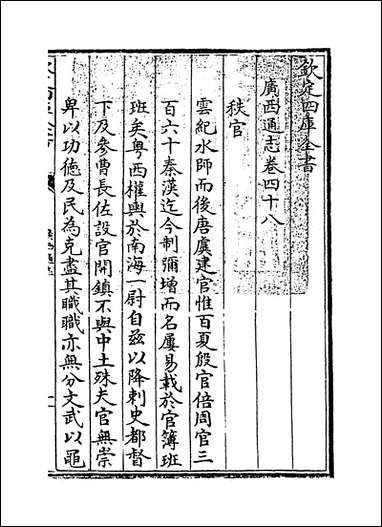 欽定四庫全書
廣西通志卷四十八
秩官
雲紀水師而後唐虞建官惟百夏殷官倍周官三
百六十秦漢迄今制彌增而名屢易載於官簿班
班矣粤西權輿於南海一尉自兹以降刺史都督
下及參曹長佐設官開鎮不與中土殊夫官無崇
卑以功德及民為克盡其職職亦無分文武以黽